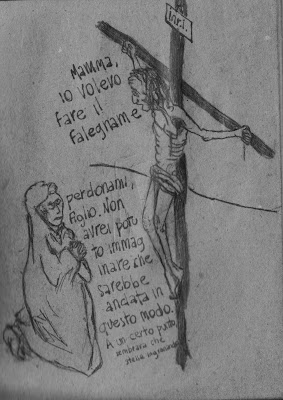 inri
Mamma,
io volevo
fare il
falegname
perdonami,
figlio. Non
avrei potu
to immag
inare che
sarebbe
andata in
questo modo.
A un certo punto,
sembrava che
stessi ingranando